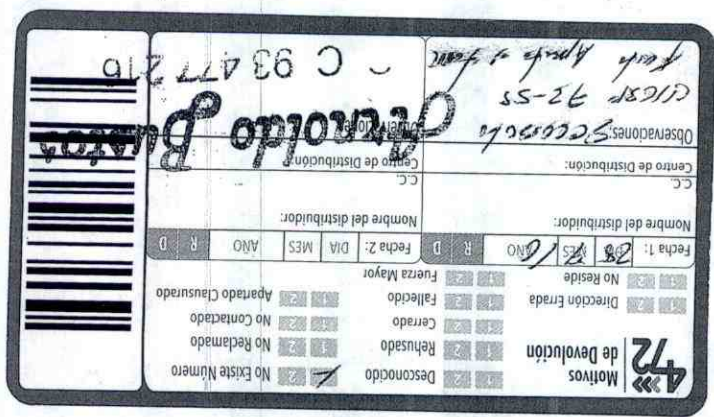 472
Motivos de Devolución
1 2 Desconocido
1 2 Rehusado
1 2 Cerrado
1 2 Fallecido
1 2 Fuerza Mayor
1 2 No Existe Número
1 2 No Reclamado
1 2 No Contactado
1 2 Apartado Clausurado
1 2 Dirección Errada
1 2 No Reside
Fecha 1: DIA MES AÑO R D
Fecha 2: DIA MES AÑO R D
Nombre del distribuidor:
Nombre del distribuidor:
C.C.
C.C.
Centro de Distribución:
Centro de Distribución:
Observaciones:
Observaciones:
Arnoldo Bustos
72-55
C 93 477 216